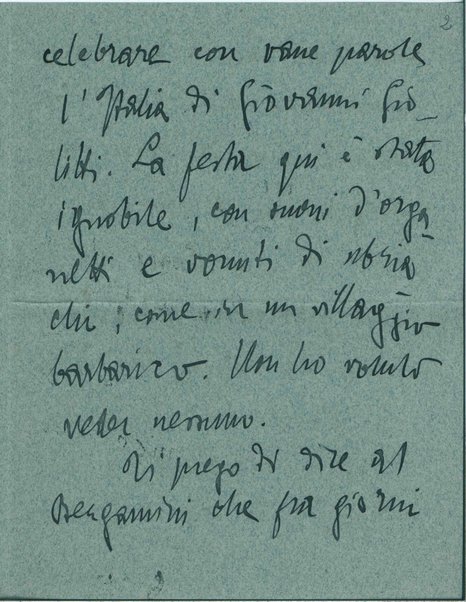 2
celebrare con vane parole
l'Italia di Giovanni Gio-
litti. La festa qui è stata
ignobile, con suoni d'orga-
netti e vomiti di ubria-
chi, come in un villaggio
barbarico. Non ho voluto
veder nessuno.
Ti prego di dire al
Bengamini che fra giorni